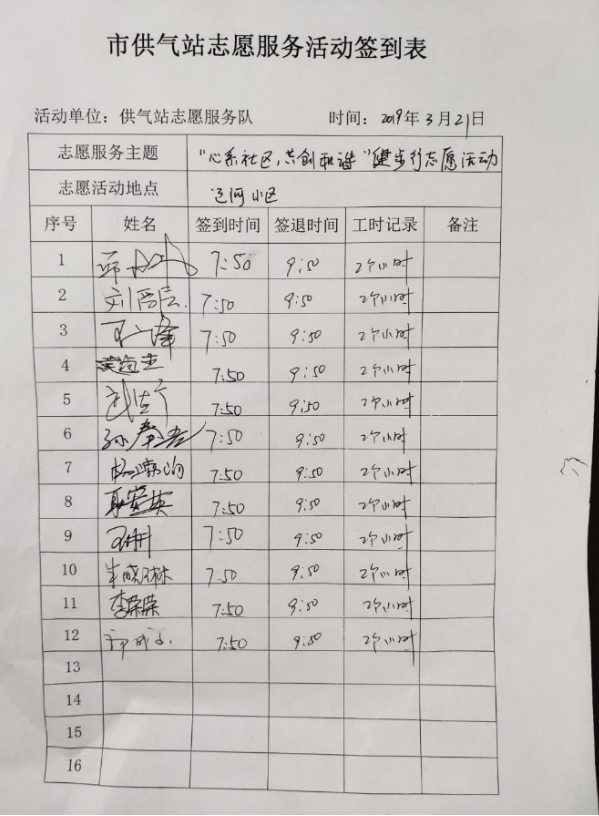 市供气站志愿服务活动签到表
活动单位：供气站志愿服务队 时间：2019年3月21日
志愿服务主题 “心系社区，共创和谐”健步行志愿活动
志愿活动地点 辽河小区
序号 姓名 签到时间 签退时间 工时记录 备注
1 7:50 9:50 2个小时
2 7:50 9:50 2个小时
3 7:50 9:50 2个小时
4 7:50 9:50 2个小时
5 7:50 9:50 2个小时
6 7:50 9:50 2个小时
7 7:50 9:50 2个小时
8 7:50 9:50 2个小时
9 7:50 9:50 2个小时
10 朱晓琳 7:50 9:50 2个小时
11 李荣荣 7:50 9:50 2个小时
12 7:50 9:50 2个小时
13
14
15
16